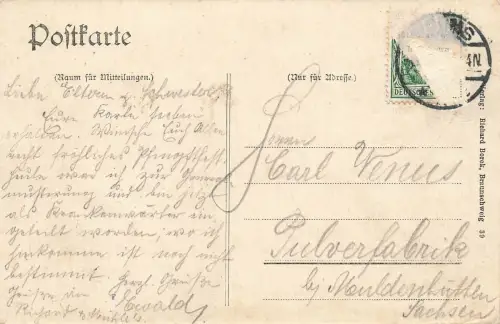 Postkarte
(Raum für Mitteilungen.)
(Nur für Adresse.)
Liebe Eltern u. Schwester!
Eure Karte haben
erhalten. Wünsche Euch Allen
recht fröhliches Pfingstfest.
Heute war ich zur General
musterung und bin jetzt
als Krankenwärter ein
geteilt worden, wo ich
hinkomme ist noch nicht
bestimmt. Herzl. Grüße
Ewald
Herrn
Carl Venus
Pulverfabrik
bj Muldenhütten
Sachsen
DEUTSCHES
MS
4N
Verlag: Richard Borek, Braunschweig 39